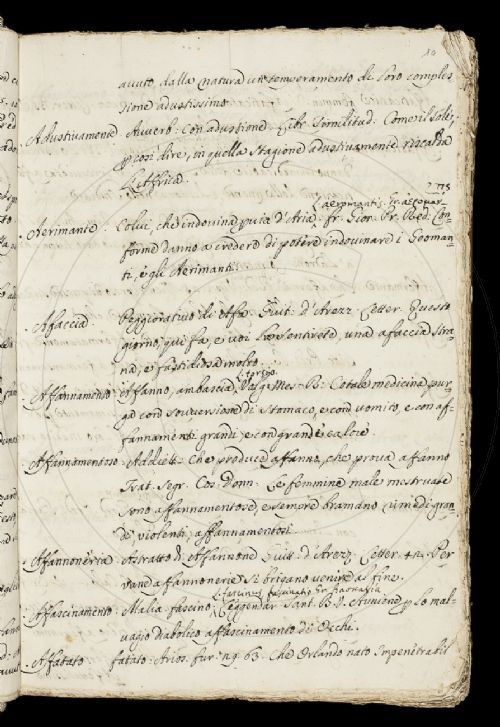 10
avuto dalla natura un temperamento di loro comples
sione adustissimo
Adustivamente Avverb. Con adustione Libr. Similitud. Come il Sole,
p così dire, in quella Stagione adustivamente riscalda
L'Affrica.
Aerimante. Colui, che indovina p via d'Aria. fr. Gior. Pr. Red. Con
forme danno a credere di potere indovinare i Geoman
ti, e gli Aerimanti.
Afaccia Peggiorativo di Afa. Guit. d'Arezz. Letter. Questo
giorno qui fa, e voi lo sentirete, una afaccia stra
na, e fastidiosa molto.
Affannamento. Affanno, ambascia, Volg. Mes. B. Cotale medicina pur
ga con sovversione di Stomaco, e con vomito, e con af
fannamenti grandi, e con grande calore.
Affannamentoso. Addiett. Che produce affanno, che prova affanno
Trat. Segr. Cos. Donn. Le femmine male mestruate
sono affannamentose, e sempre bramano rimedi gran
di violenti, affannamentosi
Affannoneria Astratto di Affannone Guit. d'Arezz. Letter. Per
vane affannonerie si brigano venire al fine.
Affascinamento. Malìa, fascino, Leggendar. Sant. B. V. Avviene p lo mal-
vagio diabolico affascinamento di Occhi.
Affatato fatato. Arios. fur. 63. Che Orlando nato impenetrabil